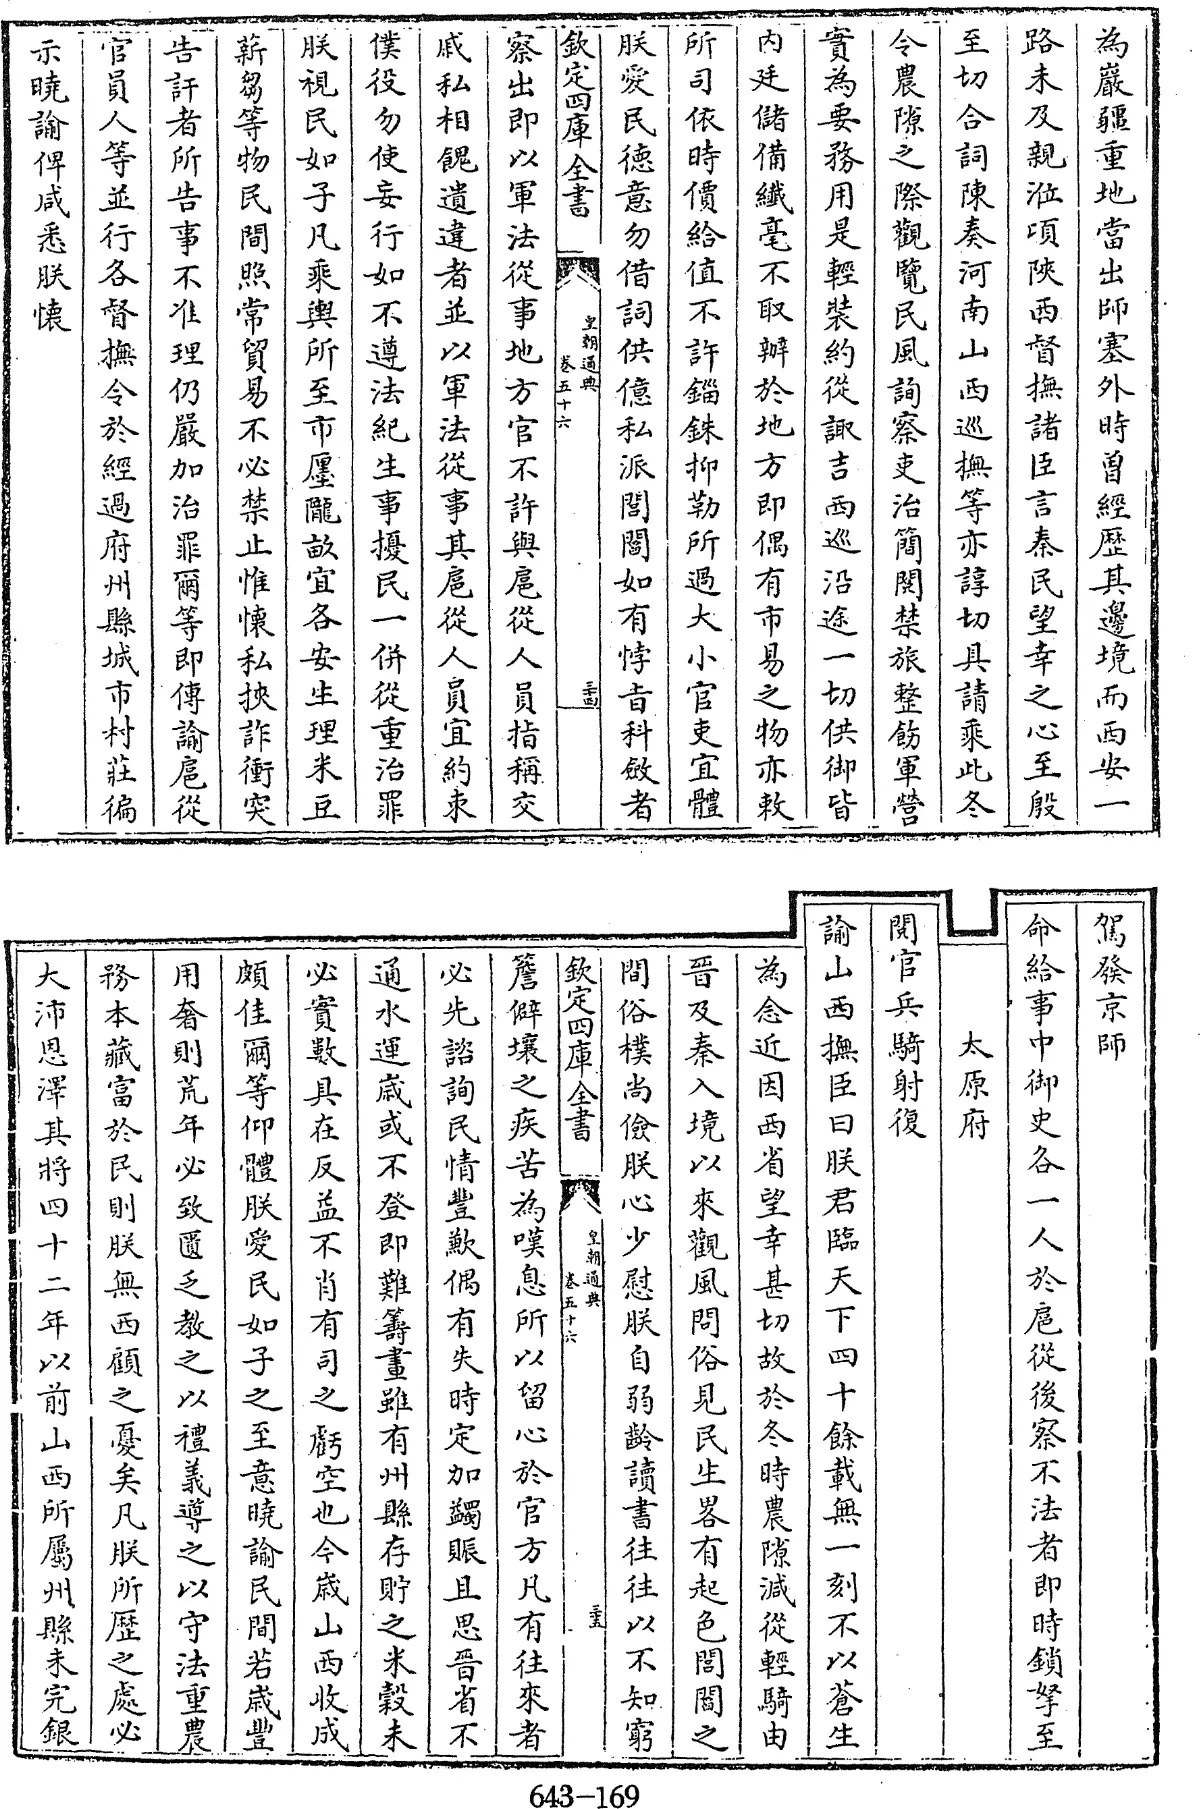 為巖疆重地當出師塞外時曾經歷其邊境而西安一
路未及親涖項陝西督撫諸臣言秦民望幸之心至殷
至切合詞陳奏河南山西巡撫等亦諄切具請乘此冬
令農隙之際觀覽民風詢察吏治簡閱禁旅整飭軍營
實為要務用是輕裝約從諏吉西巡沿途一切供御皆
內廷儲備纖毫不取辦於地方即偶有市易之物亦敕
所司依時價給值不許錙銖抑勒所過大小官吏宜體
朕愛民德意勿借詞供億私派閭閻如有悖旨科斂者
欽定四庫全書
皇朝通典
卷五十六
三十四
察出即以軍法從事地方官不許與扈從人員指稱交
戚私相餽遺違者並以軍法從事其扈從人員宜約束
僕役勿使妄行如不遵法紀生事擾民一併從重治罪
朕視民如子凡乘輿所至市廛隴畝宜各安生理米豆
薪芻等物民間照常貿易不必禁止惟懷私挾詐衝突
告訐者所告事不准理仍嚴加治罪爾等即傳諭扈從
官員人等並行各督撫令於經過府州縣城市村莊徧
示曉諭俾咸悉朕懷
駕發京師
命給事中御史各一人於扈從後察不法者即時鎖拏至
太原府
閱官兵騎射復
諭山西撫臣曰朕君臨天下四十餘載無一刻不以蒼生
為念近因西省望幸甚切故於冬時農隙減從輕騎由
晉及秦入境以來觀風問俗見民生畧有起色閭閻之
間俗樸尚儉朕心少慰朕自弱齡讀書往往以不知窮
欽定四庫全書
皇朝通典
卷五十六
三十五
簷僻壤之疾苦為嘆息所以留心於官方凡有往來者
必先諮詢民情豐歉偶有失時定加蠲賑且思晉省不
通水運歲或不登即難籌畫雖有州縣存貯之米穀未
必實數具在反益不肖有司之虧空也今歲山西收成
頗佳爾等仰體朕愛民如子之至意曉諭民間若歲豐
用奢則荒年必致匱乏教之以禮義導之以守法重農
務本藏富於民則朕無西顧之憂矣凡朕所歷之處必
大沛恩澤其將四十二年以前山西所屬州縣未完銀
643-169